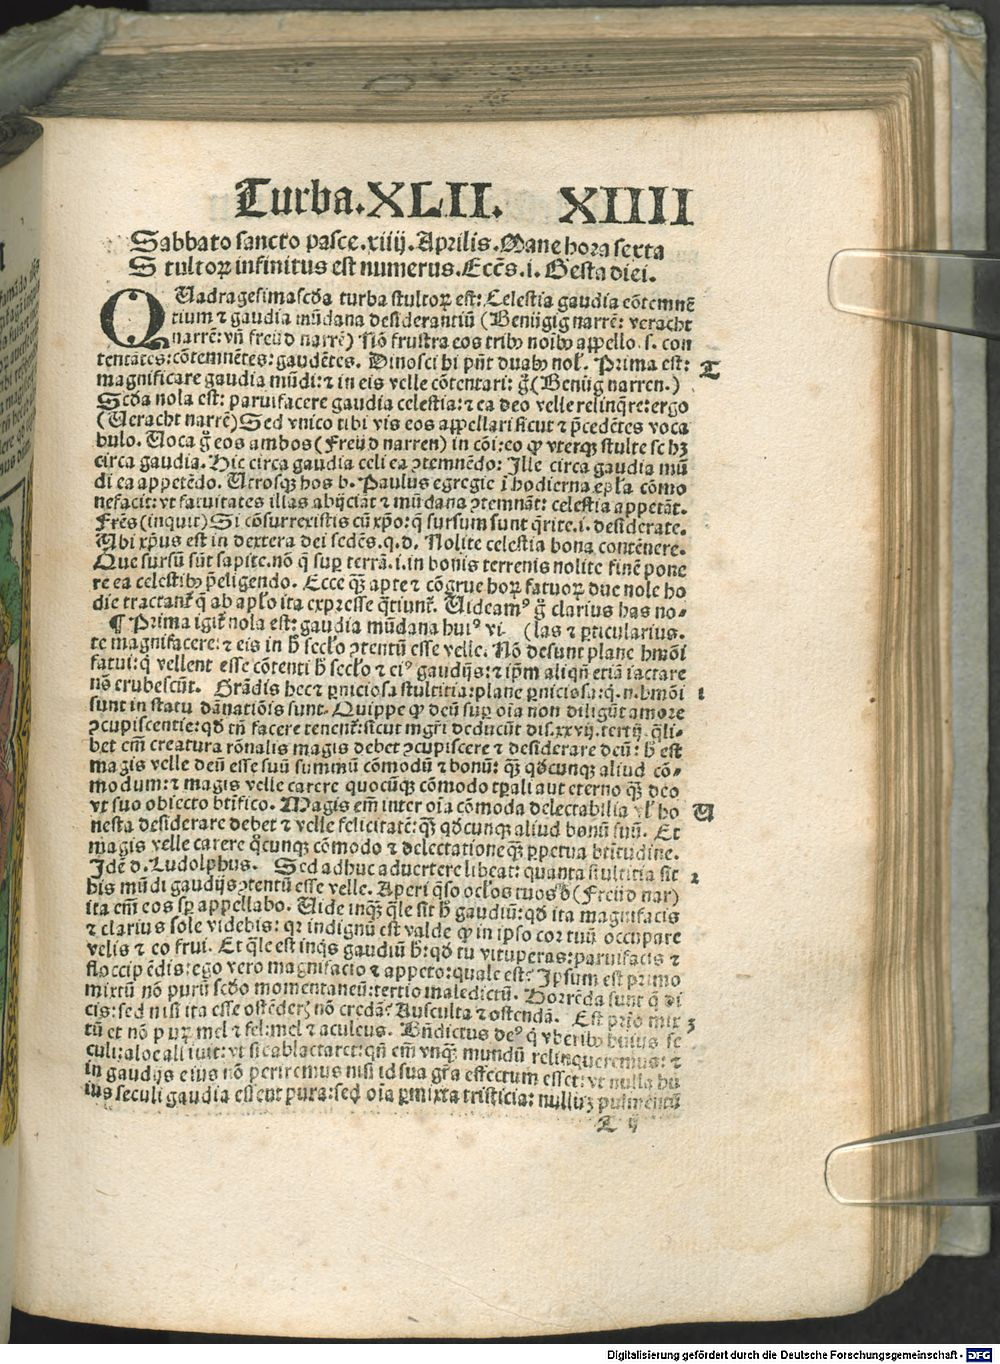 Turba.XLII. XIIII
Sabbato sancto pasce.xiiij.Aprilis.Mane hora sexta
Stultoꝝ infinitus est numerus.Ecc̄s.i. Gesta diei.
QUadragesimascd̄a turba stultoꝝ est: Celestia gaudia cōtemnē
tium ⁊ gaudia mūdana desiderantiū (Benügig narrē: veracht
narrē: vn̄ freüd narrē) Nō frustra eos tribꝰ noībꝰ appello. s. con
tentātes: cōtemnētes: gaudētes. Dinosci hi pn̄t duabꝰ nol̄. Prima est: T
magnificare gaudia mūdi: ⁊ in eis velle cōtentari: g̊ (Benüg narren.)
Scd̄a nola est: paruifacere gaudia celestia: ⁊ ea deo velle relinq̄re: ergo
(Ueracht narrē) Sed vnico tibi vis eos appellari sicut ⁊ p̄cedētes voca
bulo. Uoca g̊ eos ambos (Freüd narren) in cōi: eo ꝙ vterqꝫ stulte se hꝫ
circa gaudia. Hic circa gaudia celi ea ꝯtemnēdo: Ille circa gaudia mū
di ea appetēdo. Utrosqꝫ hos b. Paulus egregie ī hodierna epl̄a cōmo
nefacit: vt fatuitates illas abijciāt ⁊ mūdana ꝯtemnāt: celestia appetāt.
Frēs (inquit) Si cōsurrexistis cū xp̄o: q̄ sursum sunt q̄rite. i. desiderate.
Ubi xp̄us est in dextera dei sedēs. q.d. Nolite celestia bona contēnere.
Que sursū sūt sapite. nō q̄ suꝑ terrā. i. in bonis terrenis nolite finē pone
re ea celestibꝰ p̄eligendo. Ecce qꝫ apte ⁊ cōgrue hoꝝ fatuoꝝ due nole ho
die tractant̄ q̄ ab apl̄o ita expresse q̄tiunt̄. Uideamꝰ g̊ clarius has no-
¶ Prima igit̄ nola est: gaudia mūdana huiꝰ vi (las ⁊ ꝑticularius.
te magnifacere: ⁊ eis in h̄ secl̄o ꝯtentū esse velle. Nō desunt plane hmōi
fatui: q̄ vellent esse cōtenti h̄ secl̄o ⁊ eiꝰ gaudijs: ⁊ ip̄m aliqn̄ etiā iactare
nō erubescūt. Grādis hec ⁊ ꝑniciosa stultitia: plane ꝑniciosa: q. n. hmōi 1
sunt in statu dānatiōis sunt. Quippe ꝙ deū suꝑ oīa non diligūt amore
ꝯcupiscentie: qd̄ tn̄ facere tenent̄: sicut mgr̄i deducūt dis.xxvij.tertij. q̄li-
bet em̄ creatura rōnalis magis debet ꝯcupiscere ⁊ desiderare deū: h̄ est
magis velle deū esse suū summū cōmodū ⁊ bonū: qꝫ qd̄cunqꝫ aliud cō-
modum: ⁊ magis velle carere quocūqꝫ cōmodo tꝑali aut eterno qꝫ deo
vt suo obiecto bt̄ifico. Magis em̄ inter oīa cōmoda delectabilia vl̄ ho U
nesta desiderare debet ⁊ velle felicitatē: qꝫ qd̄cunqꝫ aliud bonū suū. Et
magis velle carere q̊cunqꝫ cōmodo ⁊ delectatione qꝫ ꝑpetua bt̄itudine.
Idē d. Ludolphus. Sed adhuc aduertere libeat: quanta stultitia sit 2
his mūdi gaudijs ꝯtentū esse velle. Aperi q̄so ocl̄os tuos ð (Freüd nar)
ita em̄ eos sꝑ appellabo. Uide inqꝫ q̄le sit h̄ gaudiū: qd̄ ita magnifacis
⁊ clarius sole videbis: qꝛ indignū est valde ꝙ in ipso cor tuū occupare
velis ⁊ eo frui. Et q̄le est inq̄s gaudiū h̄: qd̄ tu vituperas: paruifacis ⁊
floccipēdis: ego vero magnifacio ⁊ appeto: quale est? Ipsum est primo
mixtū nō purū scd̄o momentaneū: tertio maledictū. Horrēda sunt q̄ di
cis: sed nisi ita esse ostēderꝭ nō credā? Ausculta ⁊ ostendā. Est prīo mix 3
tū et nō puꝝ mel ⁊ fel: mel ⁊ aculeus. Bn̄dictus deꝰ q̄ vberibꝰ huius se
culi: aloe aliniit: vt sic ablactaret: qn̄ em̄ vnqꝫ mundū relinqueremus: ⁊
in gaudijs eius nō periremus nisi id sua gr̄a effectum esset: vt nulla hu
ius seculi gaudia essent pura: sed oīa ꝑmixta tristicia: nulliꝫ pulmentū
T ij
Digitalisierung gefördert durch die Deutsche Forschungsgemeinschaft - DFG